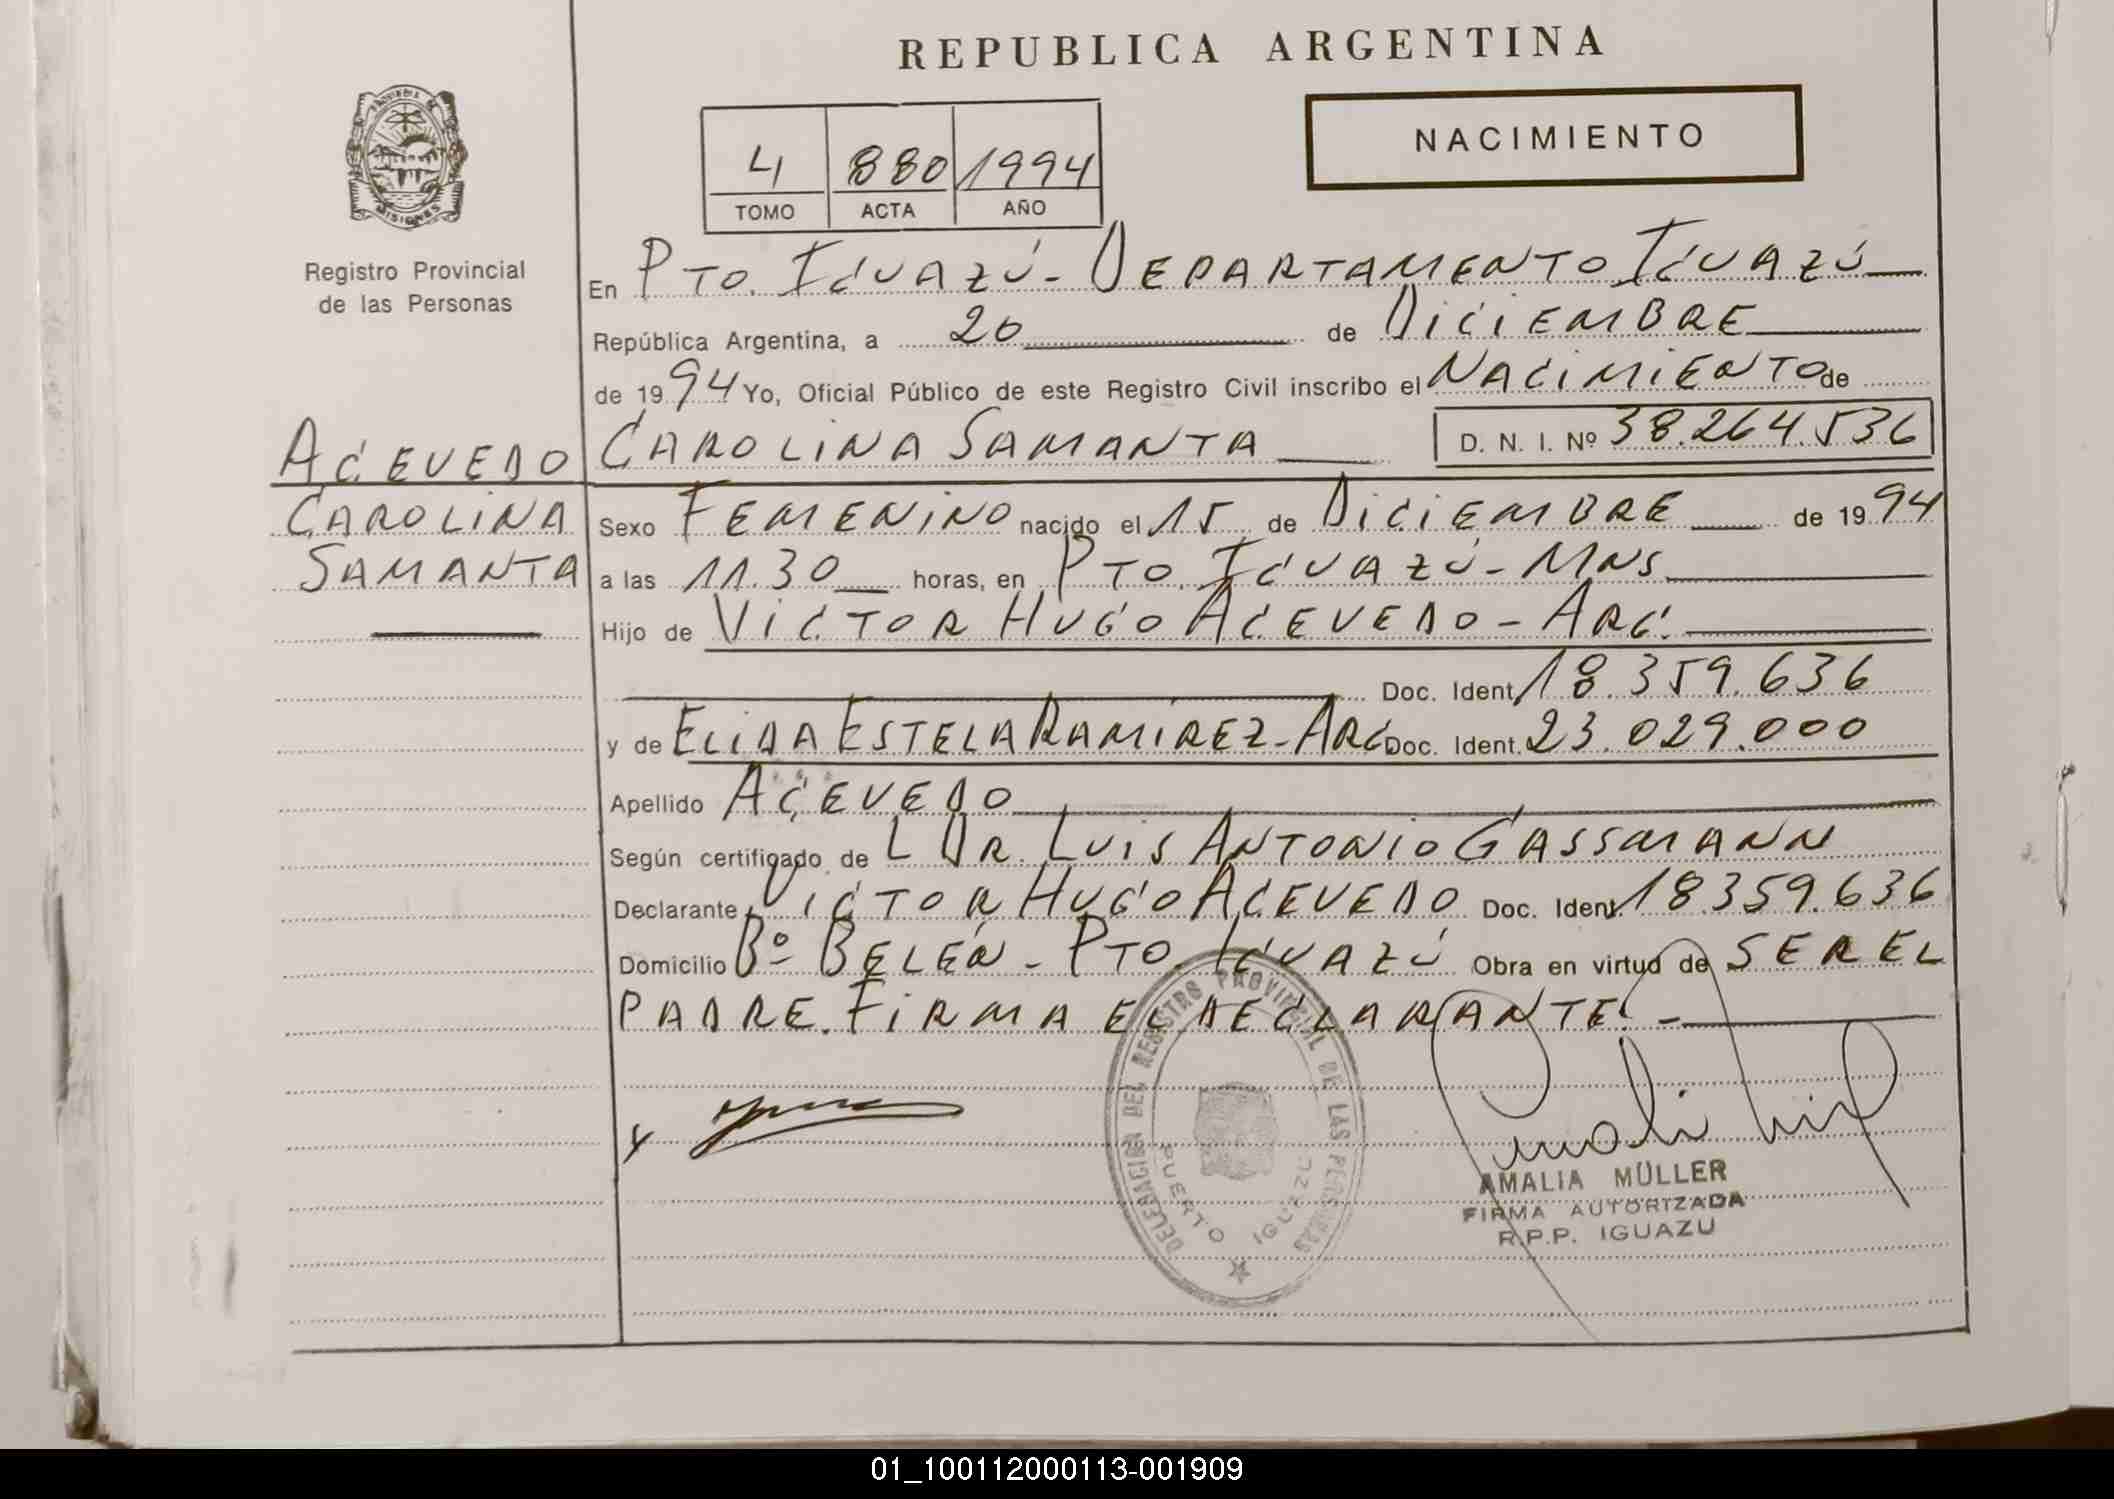 REPUBLICA ARGENTINA
PROVINCIA DE
MISIONES
Registro Provincial
de las Personas
4 880 1994
TOMO ACTA AÑO
NACIMIENTO
En PTO. IGUAZÚ - DEPARTAMENTO IGUAZÚ
República Argentina, a 20 de DICIEMBRE
de 1994 Yo, Oficial Público de este Registro Civil inscribo el NACIMIENTO de
ACEVEDO CAROLINA SAMANTA D. N. I. Nº 38.264.536
CAROLINA
SAMANTA
Sexo FEMENINO nacido el 15 de DICIEMBRE de 1994
a las 11.30 horas, en PTO. IGUAZÚ - MNS
Hijo de VICTOR HUGO ACEVEDO - ARG.
Doc. Ident. 18.359.636
y de ELIDA ESTELA RAMÍREZ - ARG Doc. Ident. 23.029.000
Apellido ACEVEDO
Según certificado de L DR. LUIS ANTONIO GASSMANN
Declarante VICTOR HUGO ACEVEDO Doc. Ident. 18.359.636
Domicilio Bº BELÉN - PTO. IGUAZÚ Obra en virtud de SER EL
PADRE. FIRMA EL DECLARANTE. -
DELEGACION DEL REGISTRO PROVINCIAL DE LAS PERSONAS
PUERTO IGUAZU
AMALIA MÜLLER
FIRMA AUTORIZADA
R.P.P. IGUAZU
01_100112000113-001909